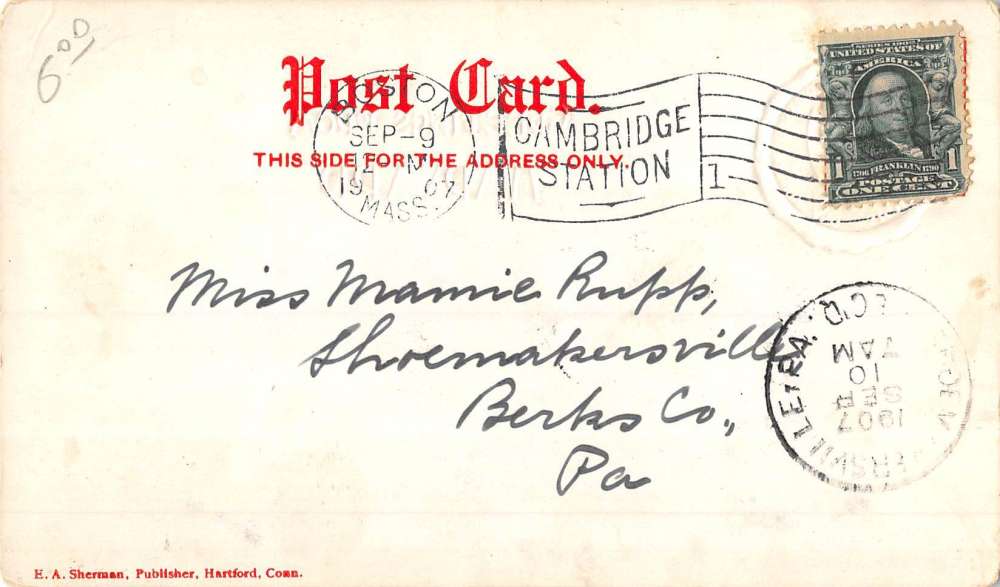 6 00
Post Card.
THIS SIDE FOR THE ADDRESS ONLY.
BOSTON
SEP-9
12-M
1907
MASS.
CAMBRIDGE
STATION
1
SERIES 1902
UNITED STATES OF
AMERICA
1706 FRANKLIN 1790
1 POSTAGE 1
ONE CENT
Miss Mamie Rupp,
Shoemakersville
Berks Co.,
Pa
REC'D.
7 AM
10
SEP
1907
E. A. Sherman, Publisher, Hartford, Conn.